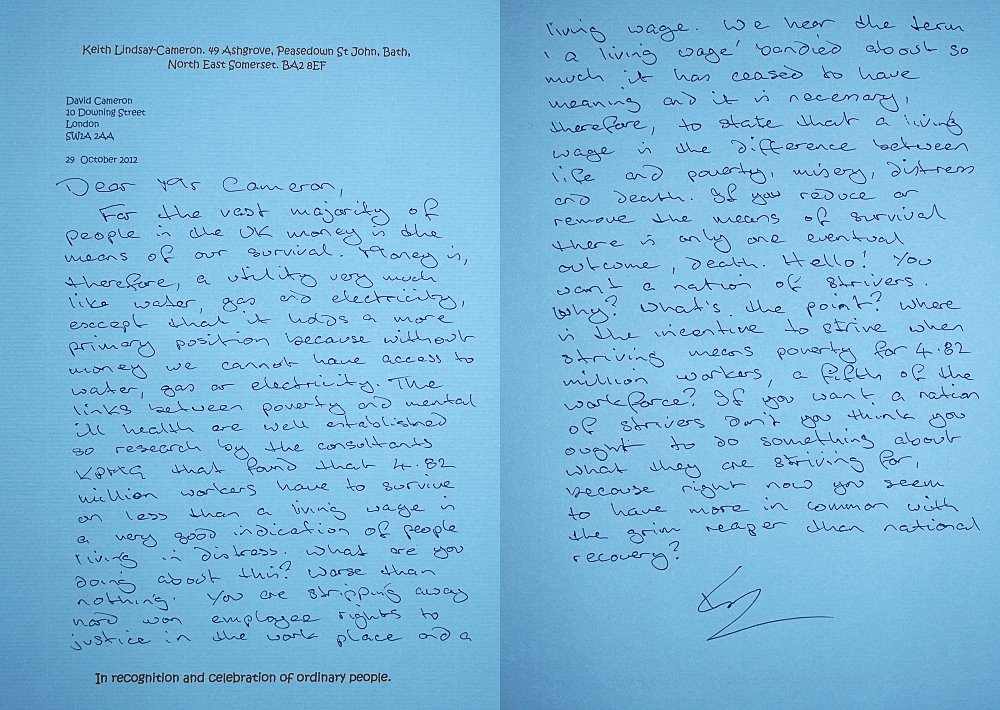 Keith Lindsay-Cameron. 49 Ashgrove, Peasedown St John, Bath,
North East Somerset. BA2 8EF
David Cameron
10 Downing Street
London
SW1A 2AA
29 October 2012
Dear Mr Cameron,
For the vast majority of
people in the UK money is the
means of our survival. Money is,
therefore, a utility very much
like water, gas and electricity,
except that it holds a more
primary position because without
money we cannot have access to
water, gas or electricity. The
links between poverty and mental
ill health are well established
so research by the consultants
KPMG that found that 4.82
million workers have to survive
on less than a living wage is
a very good indication of people
living in distress. What are you
doing about this? Worse than
nothing. You are stripping away
hard won employee rights to
justice in the work place and a
In recognition and celebration of ordinary people.
living wage. We hear the term
'a living wage' bandied about so
much it has ceased to have
meaning and it is necessary,
therefore, to state that a living
wage is the difference between
life and poverty, misery, distress
and death. If you reduce or
remove the means of survival
there is only one eventual
outcome, death. Hello! You
want a nation of strivers.
Why? What's the point? Where
is the incentive to strive when
striving means poverty for 4.82
million workers, a fifth of the
workforce? If you want a nation
of strivers don't you think you
ought to do something about
what they are striving for,
because right now you seem
to have more in common with
the grim reaper than national
recovery?